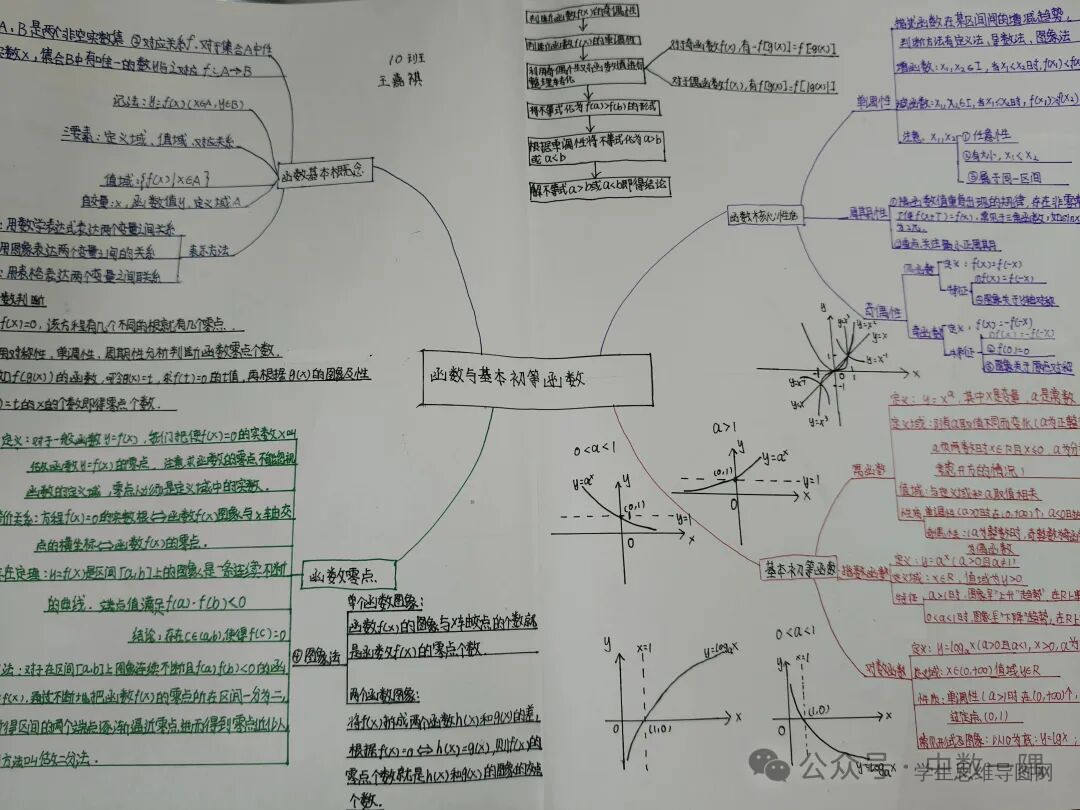 A,B是两个非空实数集 ②对应关系f,对于集合A中任
实数x,集合B中有唯一的数y与之对应 f:A→B
记法:y=f(x)(x∈A,y∈B)
三要素:定义域、值域、对应关系
值域:{f(x)|x∈A}
自变量:x,函数值y,定义域A
函数基本概念
:用数学表达式表达两个变量之间关系
用图象表达两个变量之间的关系
:用表格表达两个变量之间联系
表示方法
10班
王嘉祺
判断函数f(x)的奇偶性
判断函数f(x)的单调性
将不等式化为f(a)>f(b)的形式
根据单调性将不等式化为a>b
或a<b
解不等式a>b或a<b即得结论
对于奇函数f(x),有-f[g(x)]=f[-g(x)]
对于偶函数f(x),有f[g(x)]=f[|g(x)|]
描述函数在某区间间的增减趋势,
判断方法有定义法,导数法、图象法
增函数:x₁,x₂∈I,当x₁<x₂时,f(x₁)<f(x
减函数:x₁,x₂∈I,当x₁<x₂时,f(x₁)>f(x₂)
单调性
注意:x₁,x₂
①任意性
②有大小,x₁<x₂
③属于同一区间
函数核心性质
周期性
②重点关注最小正周期
奇偶性
偶函数
定义:f(x)=f(-x)
特征
①f(x)=f(-x)
②图象关于y轴对称
奇函数
定义:f(x)=-f(-x)
特征
①f(x)=-f(-x)
②f(0)=0
③图象关于原点对称
数判断
f(x)=0,该方程有几个不同的根就有几个零点.
用对称性,单调性,周期性分析判断函数零点个数.
如f(g(x))的函数,可令g(x)=t,求f(t)=0的t值,再根据g(x)的图象及性
)=t的x的个数即得零点个数.
函数与基本初等函数
定义:对于一般函数y=f(x),我们把使f(x)=0的实数x叫
做函数y=f(x)的零点.注意求函数的零点不能忽视
函数的定义域,零点必须是定义域中的实数.
价关系:方程f(x)=0的实数根⇔函数f(x)图象与x轴交
点的横坐标⇔函数f(x)的零点.
在定理:y=f(x)是区间[a,b]上的图象是一条连续不断
的曲线.端点值满足f(a)·f(b)<0
结论:存在c∈(a,b),使得f(c)=0
法:对于在区间[a,b]上图象连续不断且f(a)f(b)<0的函
=f(x),通过不断地把函数f(x)的零点所在区间一分为二,
得区间的两个端点逐渐逼近零点进而得到零点近似
方法叫做二分法.
函数零点
④图象法
单个函数图象:
函数f(x)的图象与x轴交点的个数就
是函数f(x)的零点个数.
两个函数图象:
将f(x)拆成两个函数h(x)和g(x)的差,
根据f(x)=0⇔h(x)=g(x),则f(x)的
零点个数就是h(x)和g(x)的图象的交点
个数.
y y=x³ y=x²
y=x
y=x⁻¹
1
0 1 x
-1
y=x⁻¹
y=x
y=x³
0<a<1
y=aˣ
y
(0,1)
y=1
0
x
a>1
y
y=aˣ
(0,1)
y=1
0
x
y
x=1
y=logₐx
0
(1,0)
x
0<a<1
y
x=1
0
(1,0)
x
y=logₐx
基本初等函数
幂函数
定义:y=xᵃ,其中x是变量,a是常数
定义域:随着a取值不同而变化(a为正整
a负两数时x∈R且x≠0,a为分
考虑开方的情况)
值域:与定义域和a取值相关
性质
单调性(a>0时在(0,+∞)个,a<0时
奇偶性:(a为整数时,奇数数幂函
为偶函数
指数函数
定义:y=aˣ(a>0且a≠1)
定义域:x∈R,值域为y>0
特征
a>1时,图象呈"上升"趋势,在R上
0<a<1时,图象呈"下降"趋势,在R上
对数函数
定义:y=logₐx(a>0且a≠1,x>0,a为
定义域:x∈(0,+∞)值域y∈R
性质:单调性(a>1时在(0,+∞)个,
过定点(0,1)
常见形式及图象:以10为底:y=lgx;
公众号·中数一隅
学生思维导图网